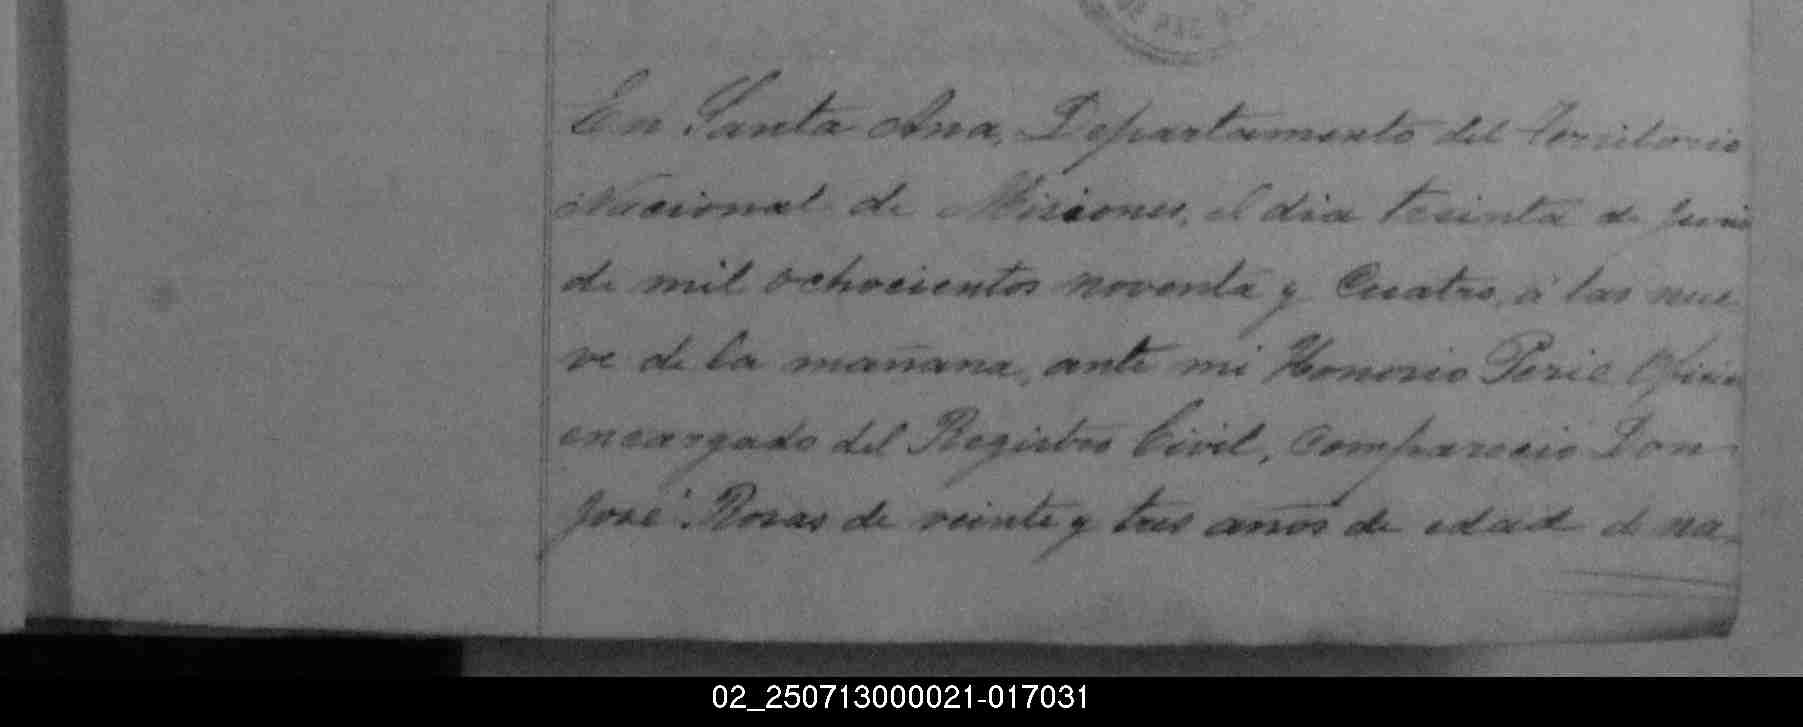 En Santa Ana, Departamento del Territorio
Nacional de Misiones, el dia treinta de Junio
de mil ochocientos noventa y Cuatro, á las nue
ve de la mañana, ante mi Honorio Peric
encargado del Registro Civil, Comparecio Don
José Rosas de veinte y tres años de edad de na-
02_250713000021-017031